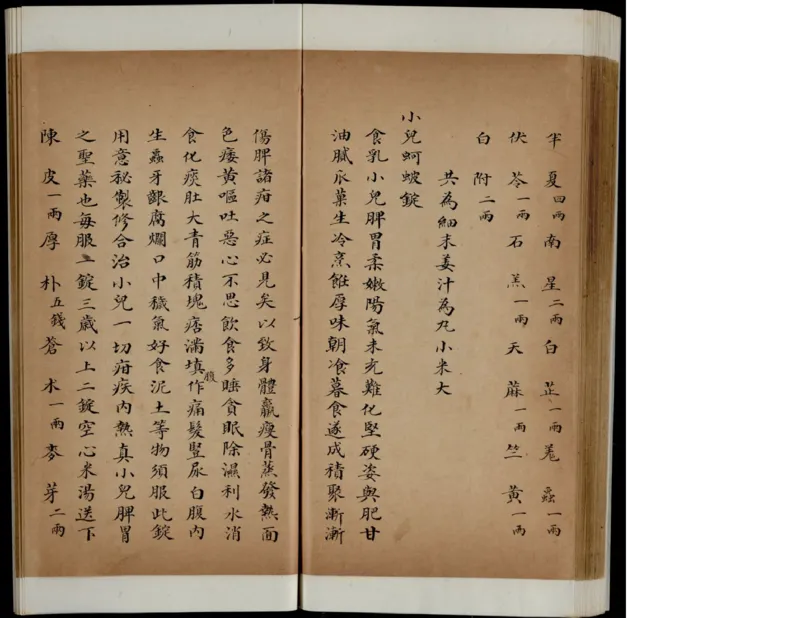 半夏四兩南星二兩白芷一兩羗蟲一兩
伏苓一兩石羔一兩天蔴一兩竺黃一兩
白附二兩
共為細末姜汁為丸小米大
小兒蚵蚾錠
食乳小兒脾胃柔嫩陽氣未充難化堅硬姿與肥甘
油膩瓜菓生冷烹飪厚味朝飡暮食遂成積聚漸漸
傷脾諸疳之症必見矣以致身體羸瘦骨蒸發熱面
色痿黃嘔吐惡心不思飲食多睡貪眠除濕利水消
食化痰肚大青筋積塊痞滿填作腹痛髮豎尿白腹內
生蟲牙齦腐爛口中穢氣好食泥土等物須服此錠
用意秘製修合治小兒一切疳疾內熱真小兒脾胃
之聖藥也每服一錠三歲以上二錠空心米湯送下
陳皮一兩厚朴五錢蒼朮一兩麥芽二兩